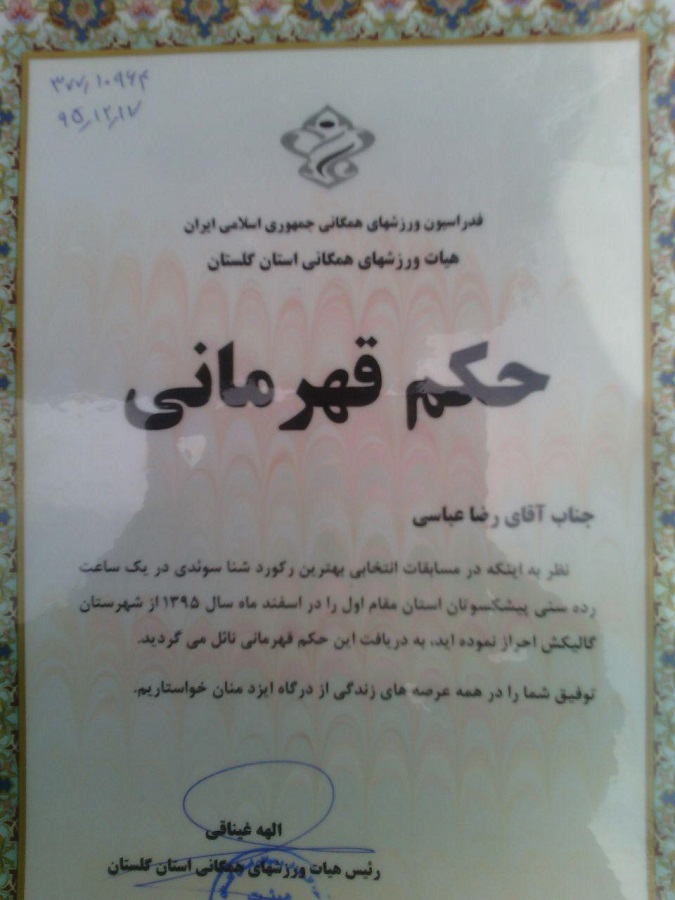 ۹۵/۱۲/۱۷
فدراسیون ورزشهای همگانی جمهوری اسلامی ایران
هیات ورزشهای همگانی استان گلستان
حکم قهرمانی
جناب آقای رضا عباسی
نظر به اینکه در مسابقات انتخابی بهترین رکورد شنا سوئدی در یک ساعت
رده سنی پیشکسوتان استان مقام اول را در اسفند ماه سال ۱۳۹۵ از شهرستان
گالیکش احراز نموده اید، به دریافت این حکم قهرمانی نائل می گردید.
توفیق شما را در همه عرصه های زندگی از درگاه ایزد منان خواستاریم.
الهه غیناقی
رئیس هیات ورزشهای همگانی استان گلستان